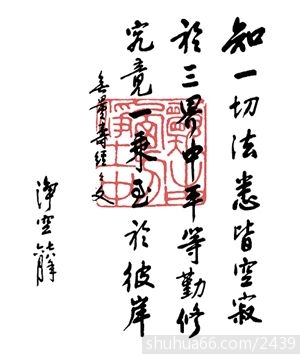 知一切法悉皆空寂
於三界中平等勤修
究竟一乘至於彼岸
無量壽經文
淨空
shuhua66.com/2439